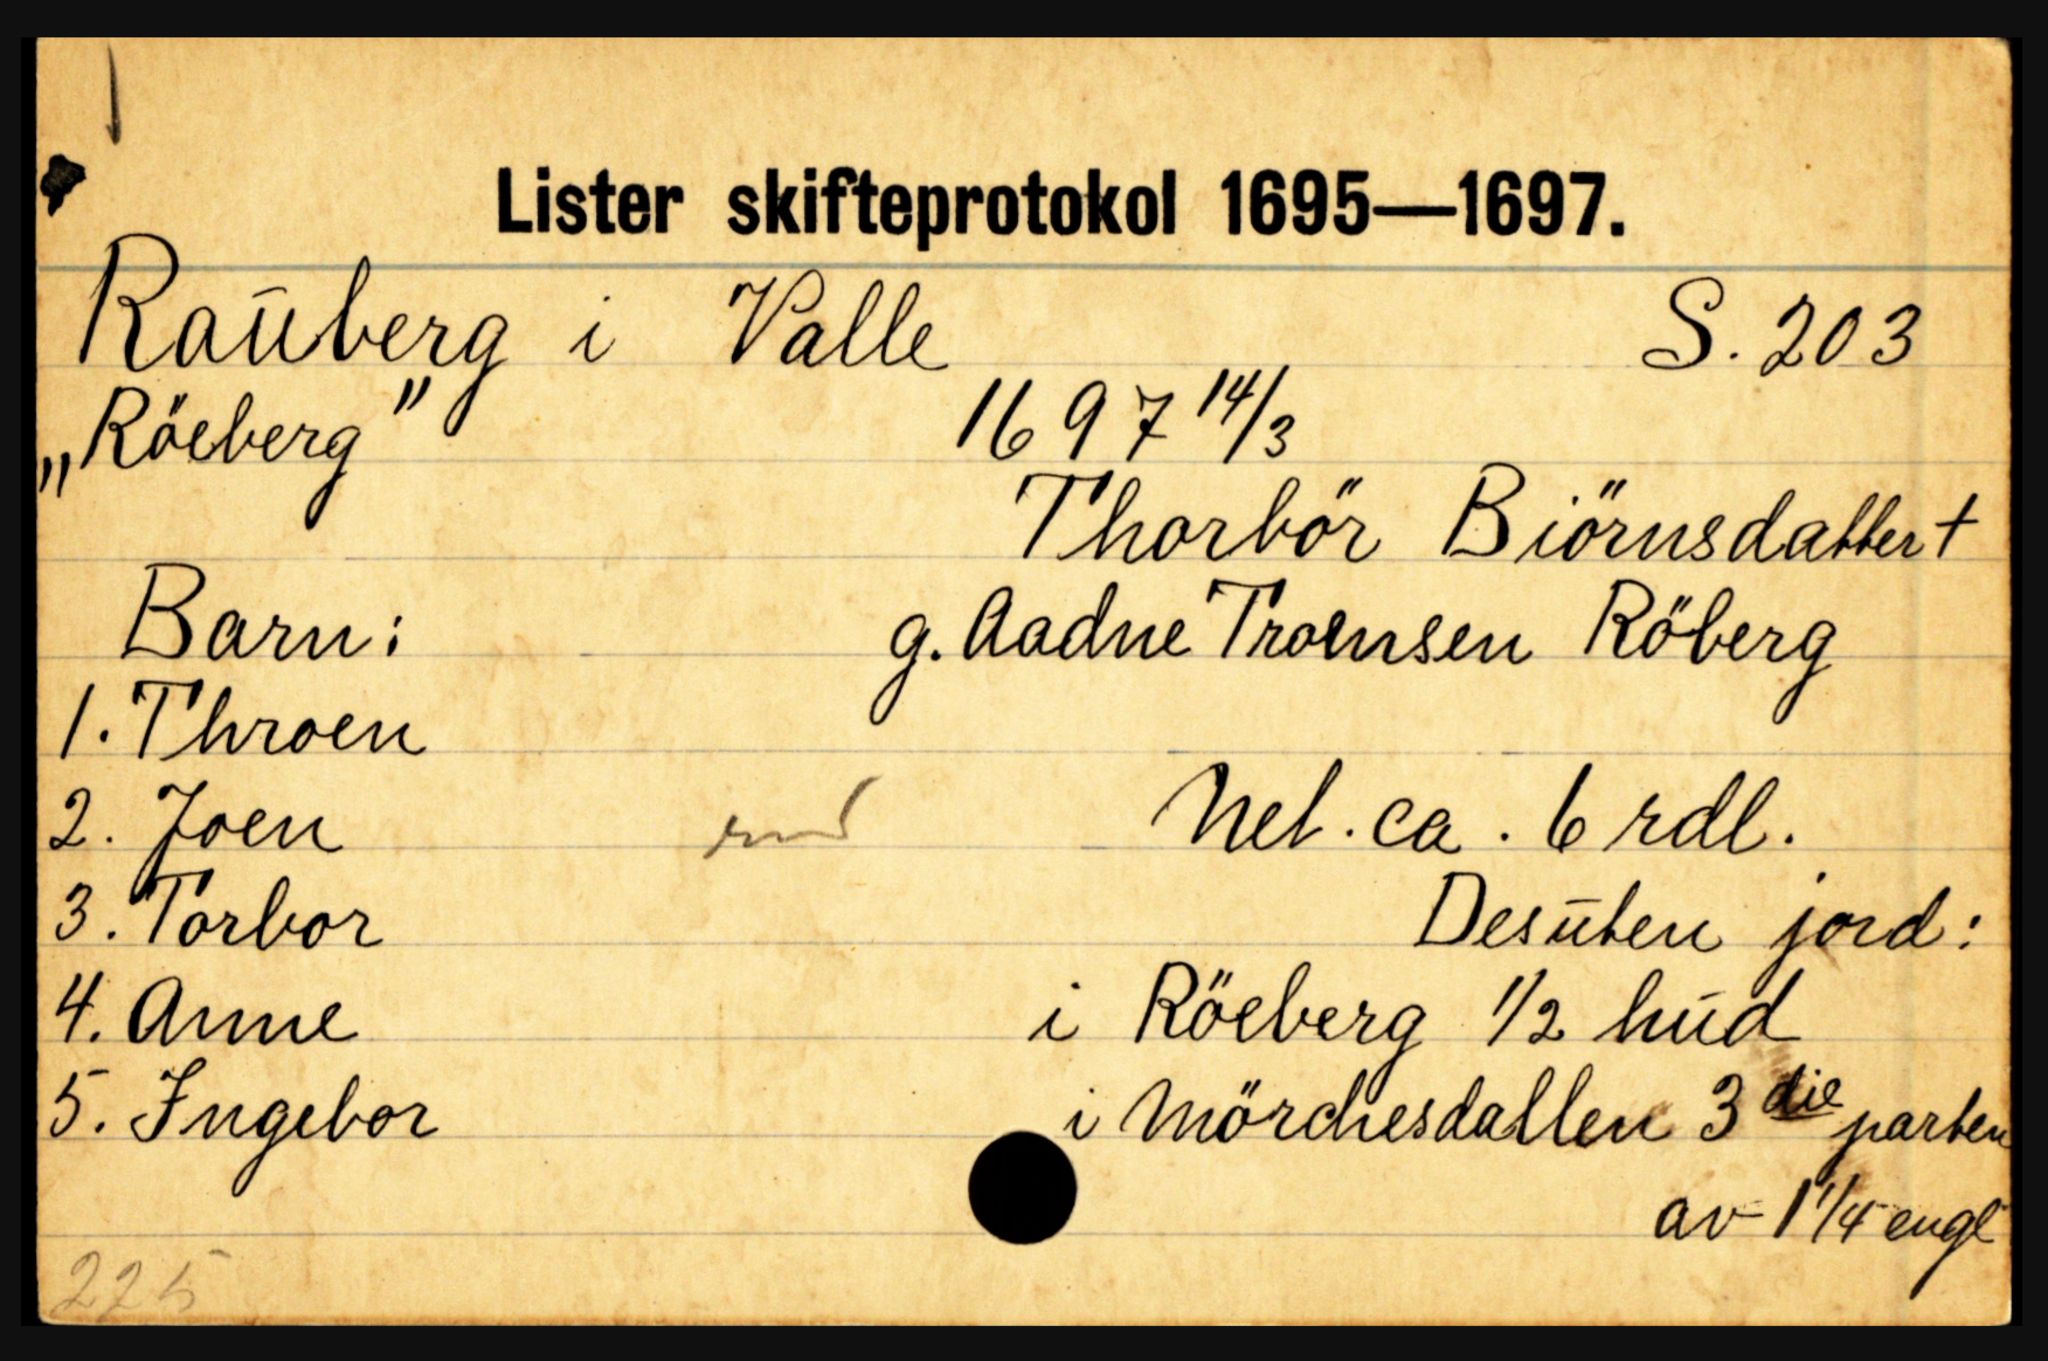 Lister skifteprotokol 1695—1697.
Rauberg i Valle S. 203
„Röeberg" 1697 14/3
Thorbör Biörnsdatter †
Barn: g. Aadne Troensen Röberg
1. Throen
2. Joen Net. ca. 6 rdl.
3. Torbor Desuten jord:
4. Anne i Röeberg 1/2 hud
5. Ingebor i Mörchesdallen 3 die parten
av 1 1/4 engl
225